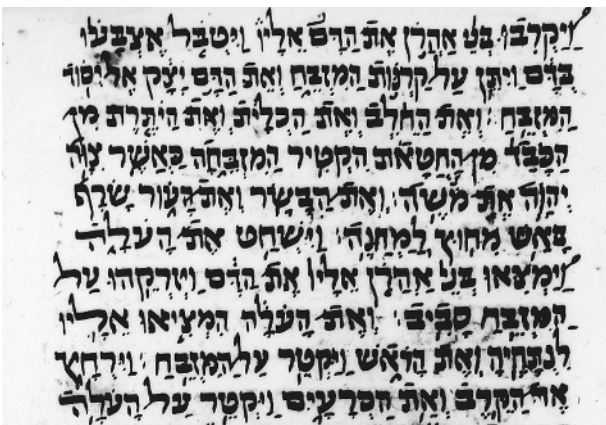 וַיַּקְרִבוּ בְּנֵי אַהֲרֹן אֶת הַדָּם אֵלָיו וַיִּטְבֹּל אֶצְבָּעוֹ
בַּדָּם וַיִּתֵּן עַל קַרְנוֹת הַמִּזְבֵּחַ וְאֶת הַדָּם יָצַק אֶל יְסוֹד
הַמִּזְבֵּחַ׃ וְאֶת הַחֵלֶב וְאֶת הַכְּלָיֹת וְאֶת הַיֹּתֶרֶת מִן
הַכָּבֵד מִן הַחַטָּאת הִקְטִיר הַמִּזְבֵּחָה כַּאֲשֶׁר צִוָּה
יְהוָה אֶת מֹשֶׁה׃ וְאֶת הַבָּשָׂר וְאֶת הָעוֹר שָׂרַף
בָּאֵשׁ מִחוּץ לַמַּחֲנֶה׃ וַיִּשְׁחַט אֶת הָעֹלָה
וַיַּמְצִאוּ בְּנֵי אַהֲרֹן אֵלָיו אֶת הַדָּם וַיִּזְרְקֵהוּ עַל
הַמִּזְבֵּחַ סָבִיב׃ וְאֶת הָעֹלָה הִמְצִיאוּ אֵלָיו
לִנְתָחֶיהָ וְאֶת הָרֹאשׁ וַיַּקְטֵר עַל הַמִּזְבֵּחַ׃ וַיִּרְחַץ
אֶת הַקֶּרֶב וְאֶת הַכְּרָעָיִם וַיַּקְטֵר עַל הָעֹלָה